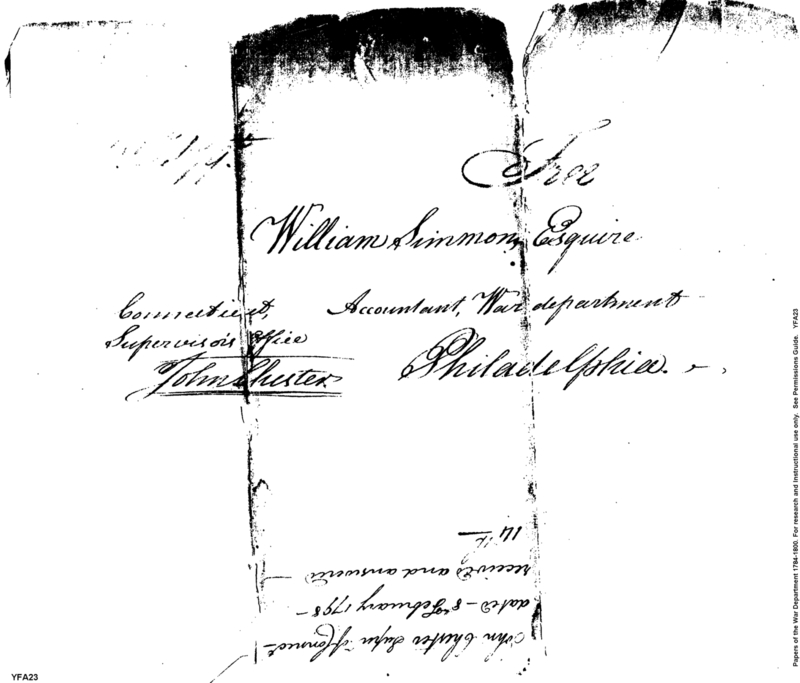 Free
William Simmons, Esquire
Accountant, War department
Philadelphia.
Connecticut,
Supervisor's Office
John Chester
John Chester Supr Connect
dated - 8 February 1798 -
received and answered
14th
Papers of the War Department 1784-1800. For research and Instructional use only. See Permissions Guide. YFA23
YFA23